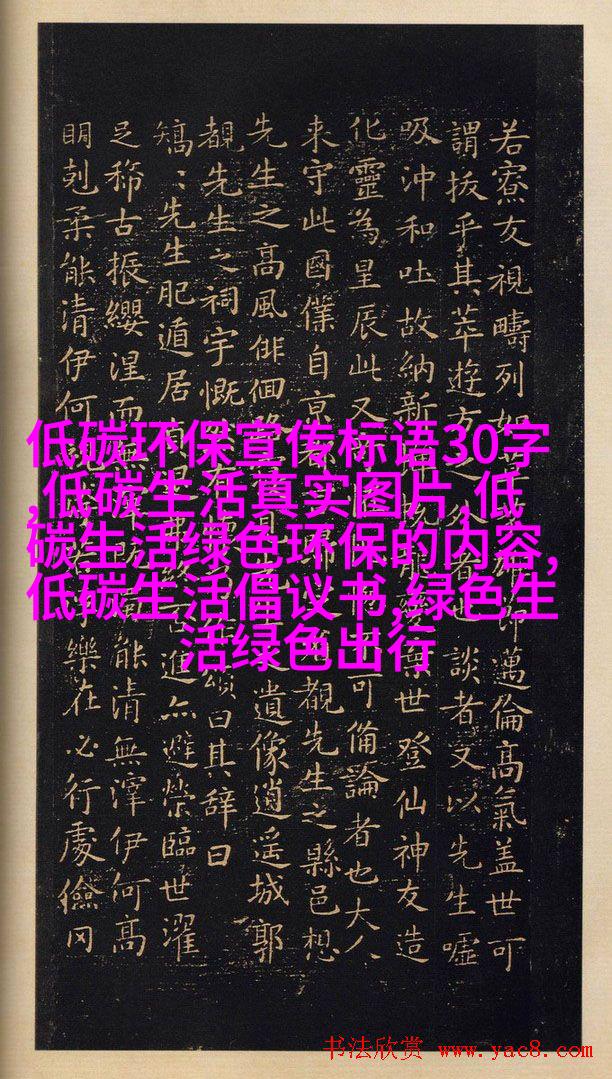 若寮友視疇列如草邁倫高氣盖世可
謂拔乎其萃遊方之外者也談者又以先生噓
吸沖和吐故納新世登仙神友造
化靈為星辰此又可備論者也大人
来守此國僕自京覩先生之縣邑想
先生之高風徘徊遺像逍遥城郭
覩先生之祠宇慨頌曰其辭曰
矯〻先生肥遁居進亦避榮臨世濯
足稀古振纓涅而能清無滓伊何高
明剋柔能清伊何樂在必行處儉罔
低碳环保宣传标语30字
,低碳生活真实图片,低
碳生活绿色环保的内容,
低碳生活倡议书,绿色生
活绿色出行
书法欣赏 www.yac8.com